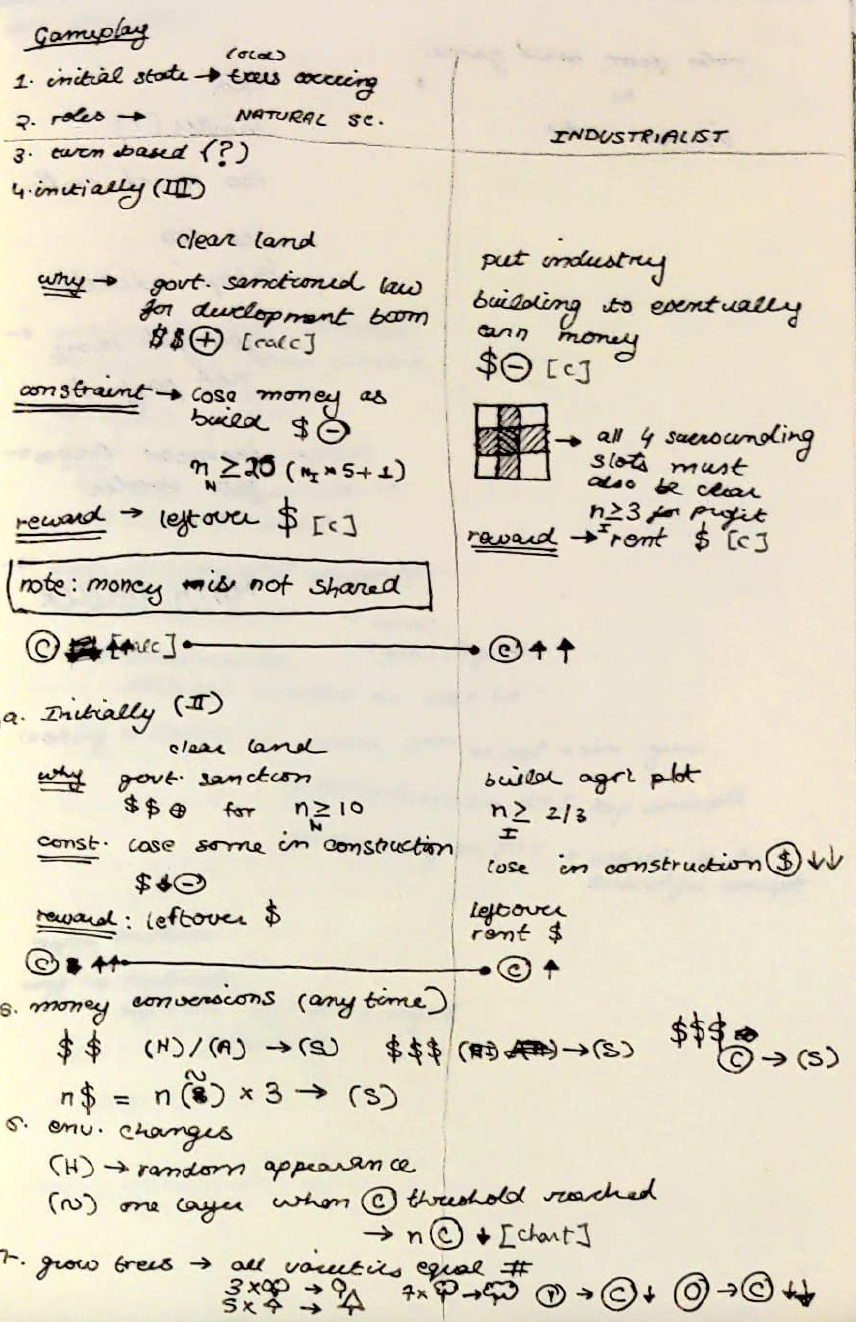 Gameplay
(old)
1. initial state → trees occuring
2. roles → NATURAL sc.
INDUSTRIALIST
3. turn based (?)
4. initially (III)
clear land
why → govt. sanctioned law
for development boom
$$ ⊕ [calc]
constraint → lose money as
build $ ⊖
n_N ≥ 20 (n_I × 5 + 1)
reward → leftover $ [c]
put industry
building to eventually
earn money
$ ⊖ [c]
→ all 4 surrounding
slots must
also be clear
n_I ≥ 3 for profit
reward → rent $ [c]
note: money is not shared
© [calc] © ↑ ↑
a. Initially (II)
clear land
why govt. sanction
$$ ⊕ for n_N ≥ 10
const. lose some in construction
$ ↓ ⊖
reward: leftover $
build agri plot
n_I ≥ 2/3
lose in construction ($) ↓↓
leftover
rent $
© ↑↑ © ↑
5. money conversions (any time)
$$ (H)/(A) → (S) $$$ → (S) $$$ © → (S)
n$ = n(~) × 3 → (S)
6. env. changes
(H) → random appearance
(~) one layer when © threshold reached
→ n © ↓ [chart]
7. grow trees → all varieties equal #
3 × →
5 × →
7 × → (P) → © ↓ (O) → © ↓↓